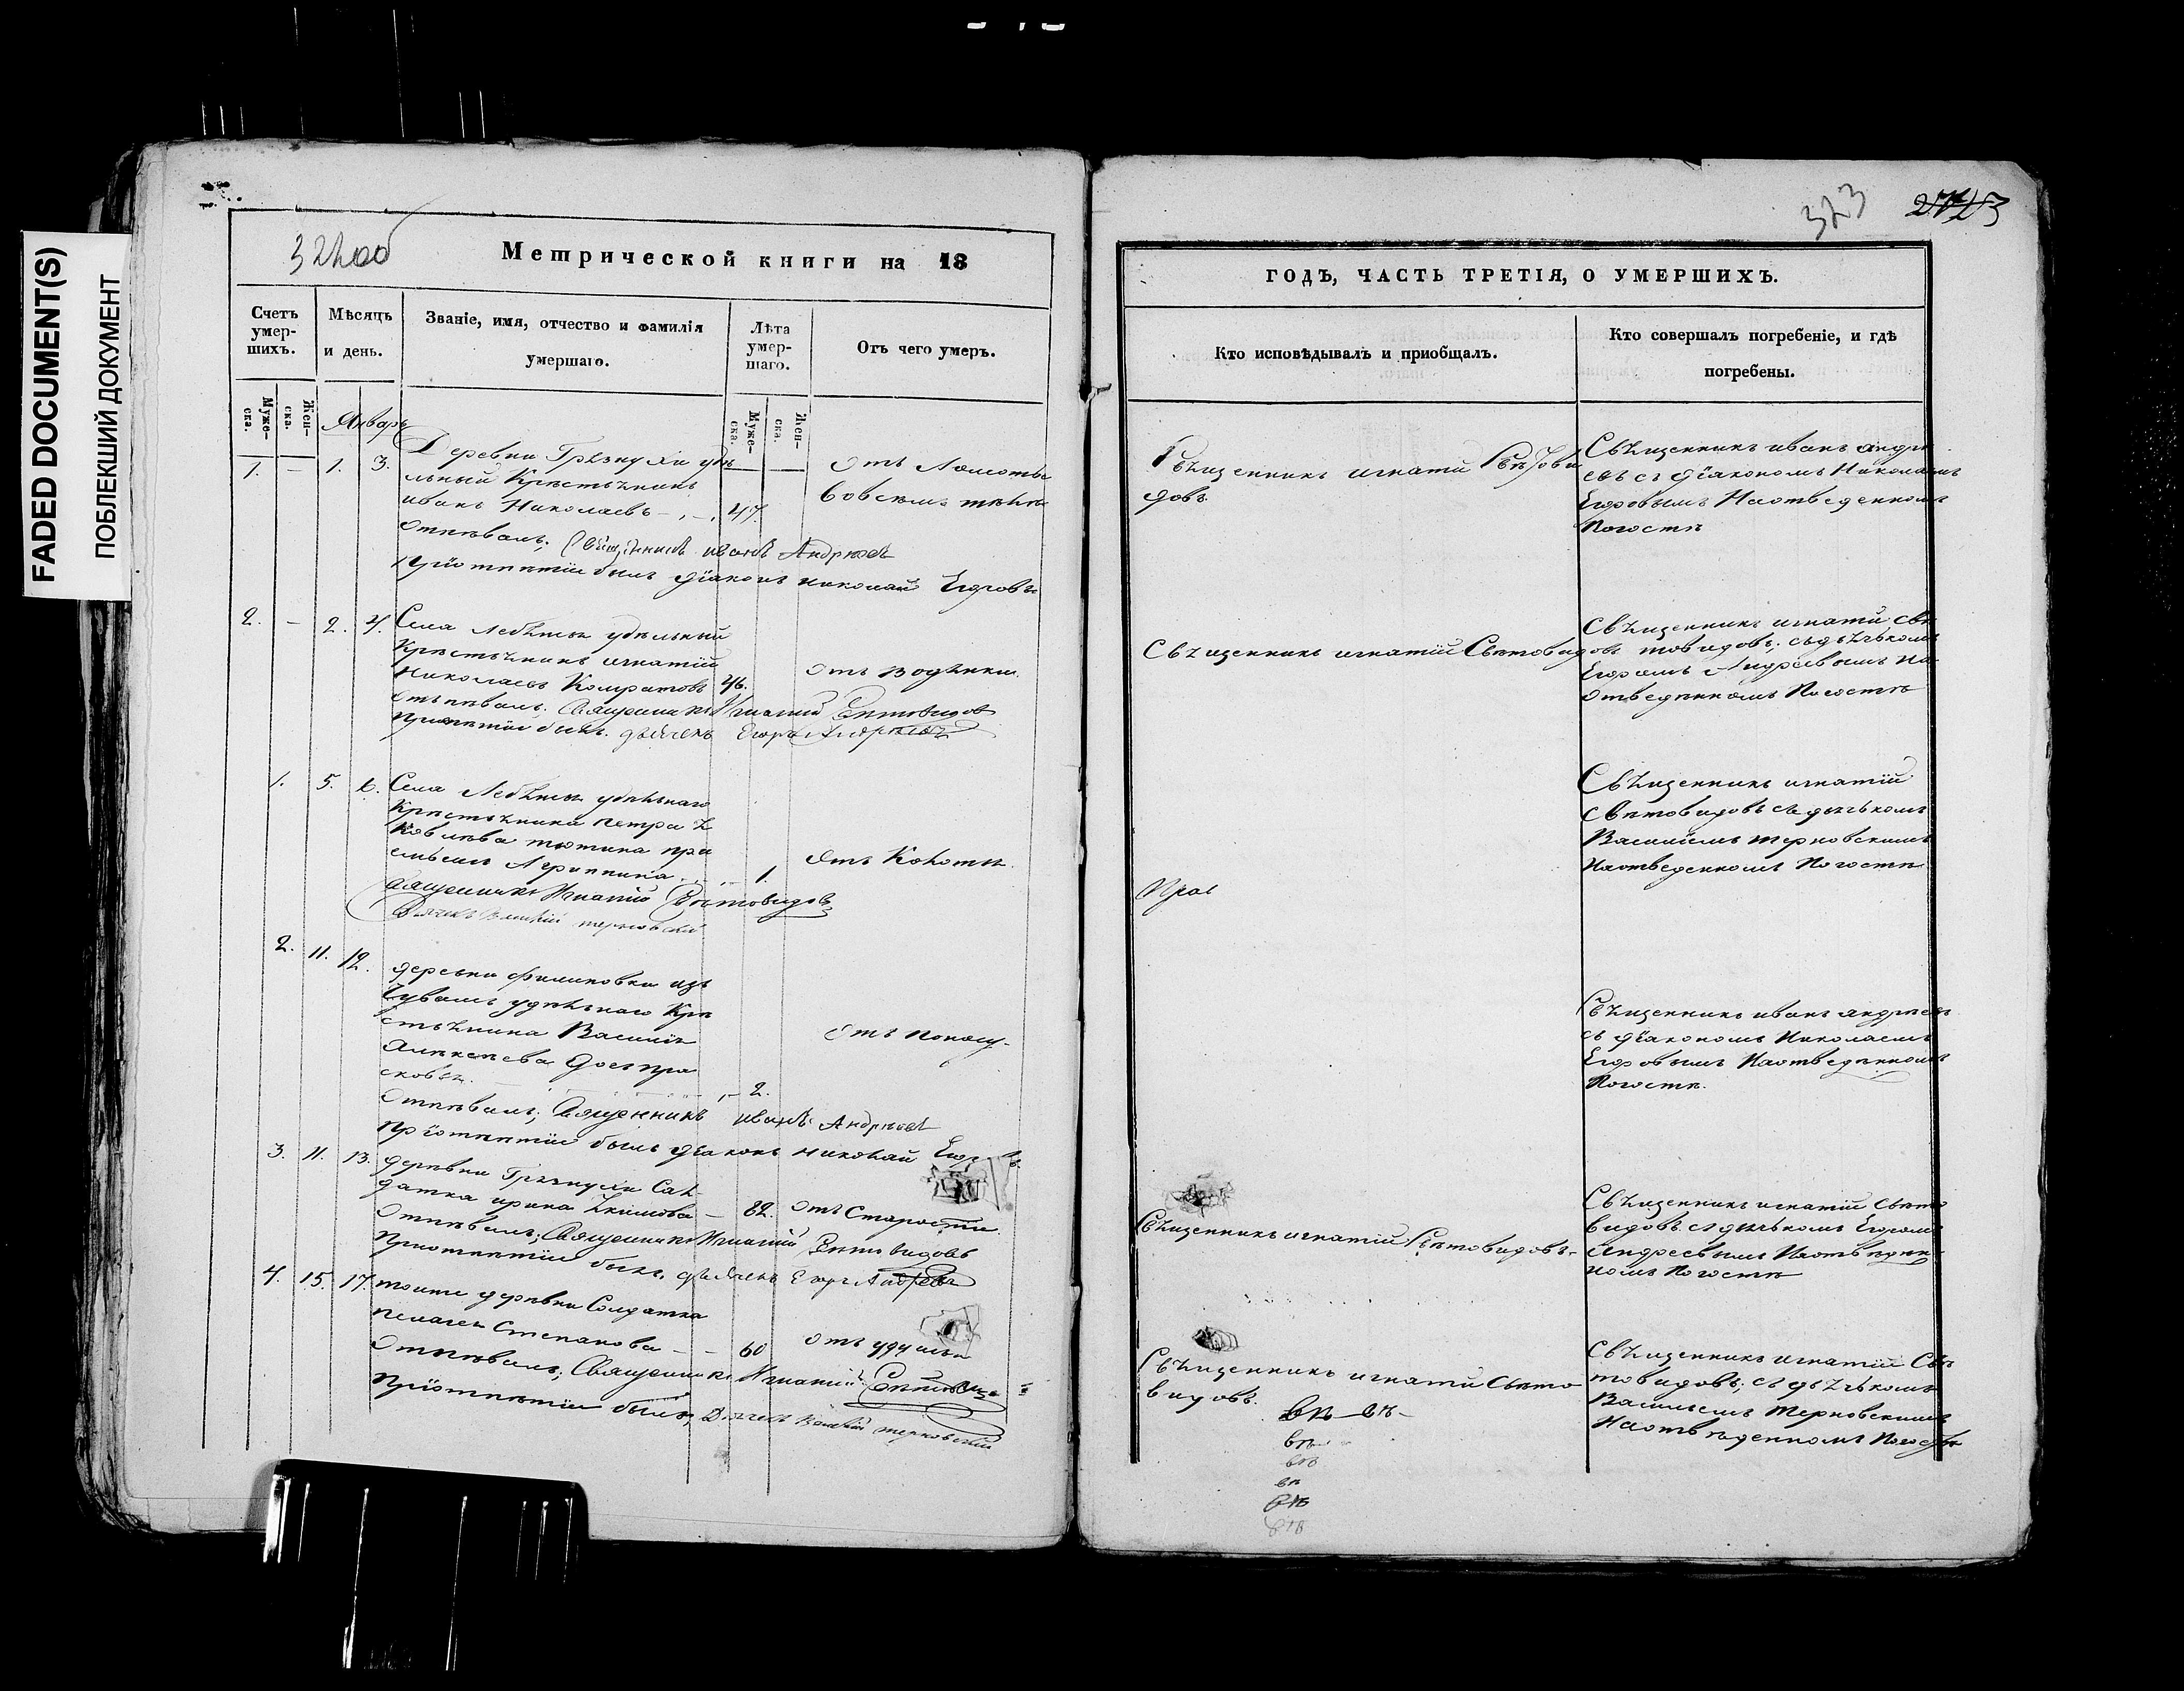 FADED DOCUMENT(S)
ПОБЛЕКШИЙ ДОКУМЕНТ
322об
Метрической книги на 18
Счетъ умер-шихъ.
Мѣсяцъ и день.
Званіе, имя, отчество и фамилія умершаго.
Лѣта умер-шаго.
Отъ чего умеръ.
Муже-ска.
Жен-ска.
Муже-ска.
Жен-ска.
Январь
1. — 1. 3. Деревни Грязнухи удѣ
льный Крестьянинъ
иванъ Николаевъ 47.
Отъ Ломоты
во всемъ тѣле
Отпѣвалъ; Священникъ иванъ Андреевъ
При отпѣтіи былъ діаконъ николай Егоровъ
2. — 2. 4. Села удѣльный
Крестьянинъ игнатій
Николаевъ 46.
Отъ водянки
Отпѣвалъ: Священникъ Игнатій Свѣтовидов
При отпѣтіи былъ. дьячекъ Егоръ Андреевъ
1. 5. 6. Села удѣльнаго
Крестьянина петра Я
ковлева
Агрипина 1.
Священникъ Игнатій Свѣтовидовъ
Дьячекъ Василий терновский
2. 11. 12.
деревни филиповки изъ
Чувашъ удѣльнаго Кре
стьянина Василія
Алексеева дочь пра
сковья. 2.
Отъ поносу
Отпѣвалъ; Священникъ иванъ Андреевъ
При отпѣтіи былъ діаконъ николай
3. 11. 13. деревни Грязнухи Сал
датка ирина Якимова — 82. Отъ Старости
Отпѣвалъ; Священникъ Игнатий Свѣтовидовъ
При отпѣтіи былъ, дьячекъ Егоръ Андреевъ
4. 15. 17. тоиже деревни Солдатка
пелагея Степанова — — 60
Отъ
Отпѣвалъ; Священникъ Игнатий
При отпѣтіи былъ, Дьячекъ Василий терновский
323
ГОДЪ, ЧАСТЬ ТРЕТІЯ, О УМЕРШИХЪ.
Кто исповѣдывалъ и пріобщалъ.
Кто совершалъ погребеніе, и гдѣ погребены.
Свѣщенникъ игнатій Свѣтови
довъ
Свѣщенникъ иванъ андре
евъ съ діакономъ Николаемъ
Егоровымъ На отведенномъ
Погостѣ
Свѣщенникъ игнатій Свѣтовидовъ
Свѣщенникъ игнатій свѣ
товидовъ; съ дьячькомъ
Егоромъ Андреевымъ на
отведенномъ Погостѣ
Свѣщенникъ игнатій
Свѣтовидовъ съ дьячькомъ
Василіемъ терновскимъ
На отведенномъ Погостѣ
Свѣщенникъ иванъ андреевъ
съ діакономъ Николаемъ
Егоровымъ На отведенномъ
Погостѣ.
Свѣщенникъ игнатій Свѣтовидовъ
Свѣщенникъ игнатій Свѣто
видовъ съ дьячькомъ Егоромъ
Андреевымъ На отведен
номъ Погостѣ
Свѣщенникъ игнатій Свѣто
видовъ.
Свѣщенникъ игнатій Свѣ
товидовъ; съ дьячькомъ
Василіемъ терновскимъ
На отведенномъ Погостѣ